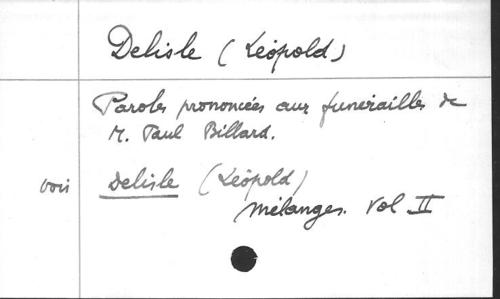 Delisle (Léopold)
Paroles prononcées aux funérailles de
M. Paul Billard.
voir Delisle (Léopold)
Mélanges. Vol II